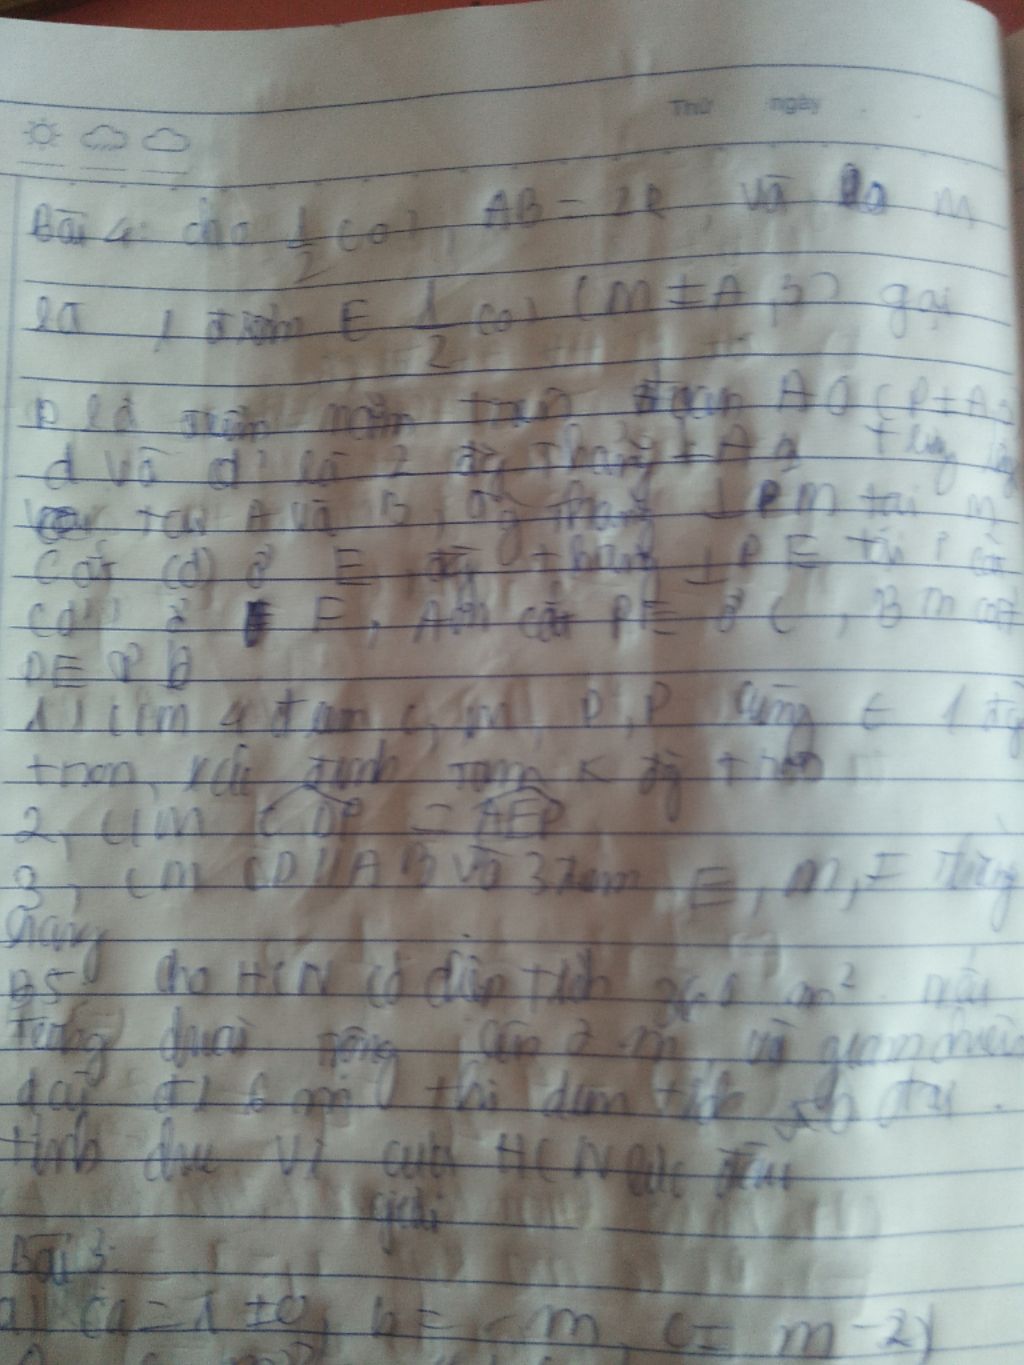 Thứ ngày
Bài 4: cho 1/2 (O), AB = 2R, và M
là 1 điểm E 1/2 (O) (M ± A, B) gọi
P là điểm nằm trên đoạn AO (P ± A,
d và d' là 2 đg thẳng ⊥ AB
tại A và B, đg thẳng ⊥ PM tại M
cắt (d) ở E, đg thẳng ⊥ PE tại P cắt
(d') ở F, AM cắt PE ở C, BM cắt
PF ở D
1) CM 4 điểm C, M, D, P cùng ∈ 1 đg
tròn, xác định tâm đg tròn
2, CM CDP = AEP
3, CM CD//AB và 3 điểm E, M, F thẳng
hàng
B5 cho HCN có diện tích m² nếu
tăng chiều rộng lên 2 m, và giảm chiều
dài đi 6 m thì diện tích
tính chu vi của HCN lúc đầu
giải
Bài 3:
a) (a = 1 ± 0, b = - m, c = m - 2)